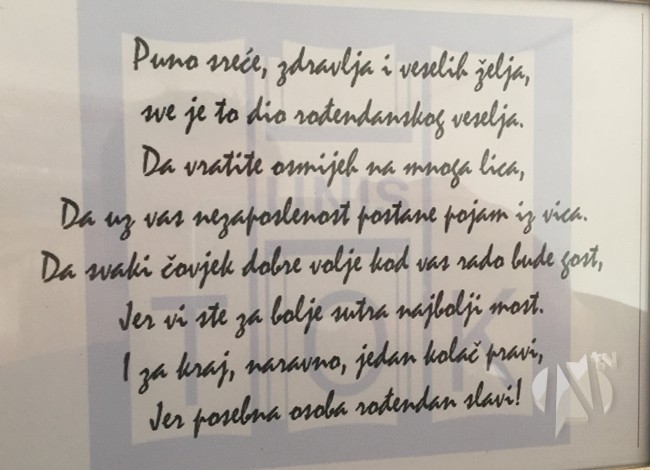 Puno sreće, zdravlja i veselih želja,
sve je to dio rođendanskog veselja.
Da vratite osmijeh na mnoga lica,
Da uz vas nezaposlenost postane pojam iz vica.
Da svaki čovjek dobre volje kod vas rado bude gost,
Jer vi ste za bolje sutra najbolji most.
I za kraj, naravno, jedan kolač pravi,
Jer posebna osoba rođendan slavi!
UNIS
TOK
N TV